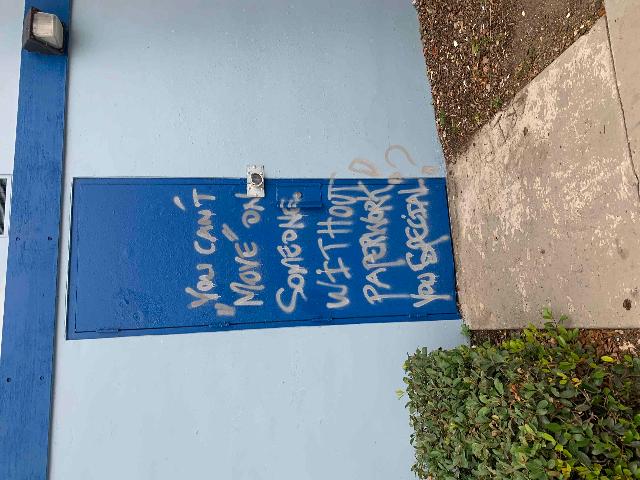 YOU CAN'T
"MOVE" ON
SOMEONE.
WITHOUT
PAPERWORK?
YOU ESPECIAL.